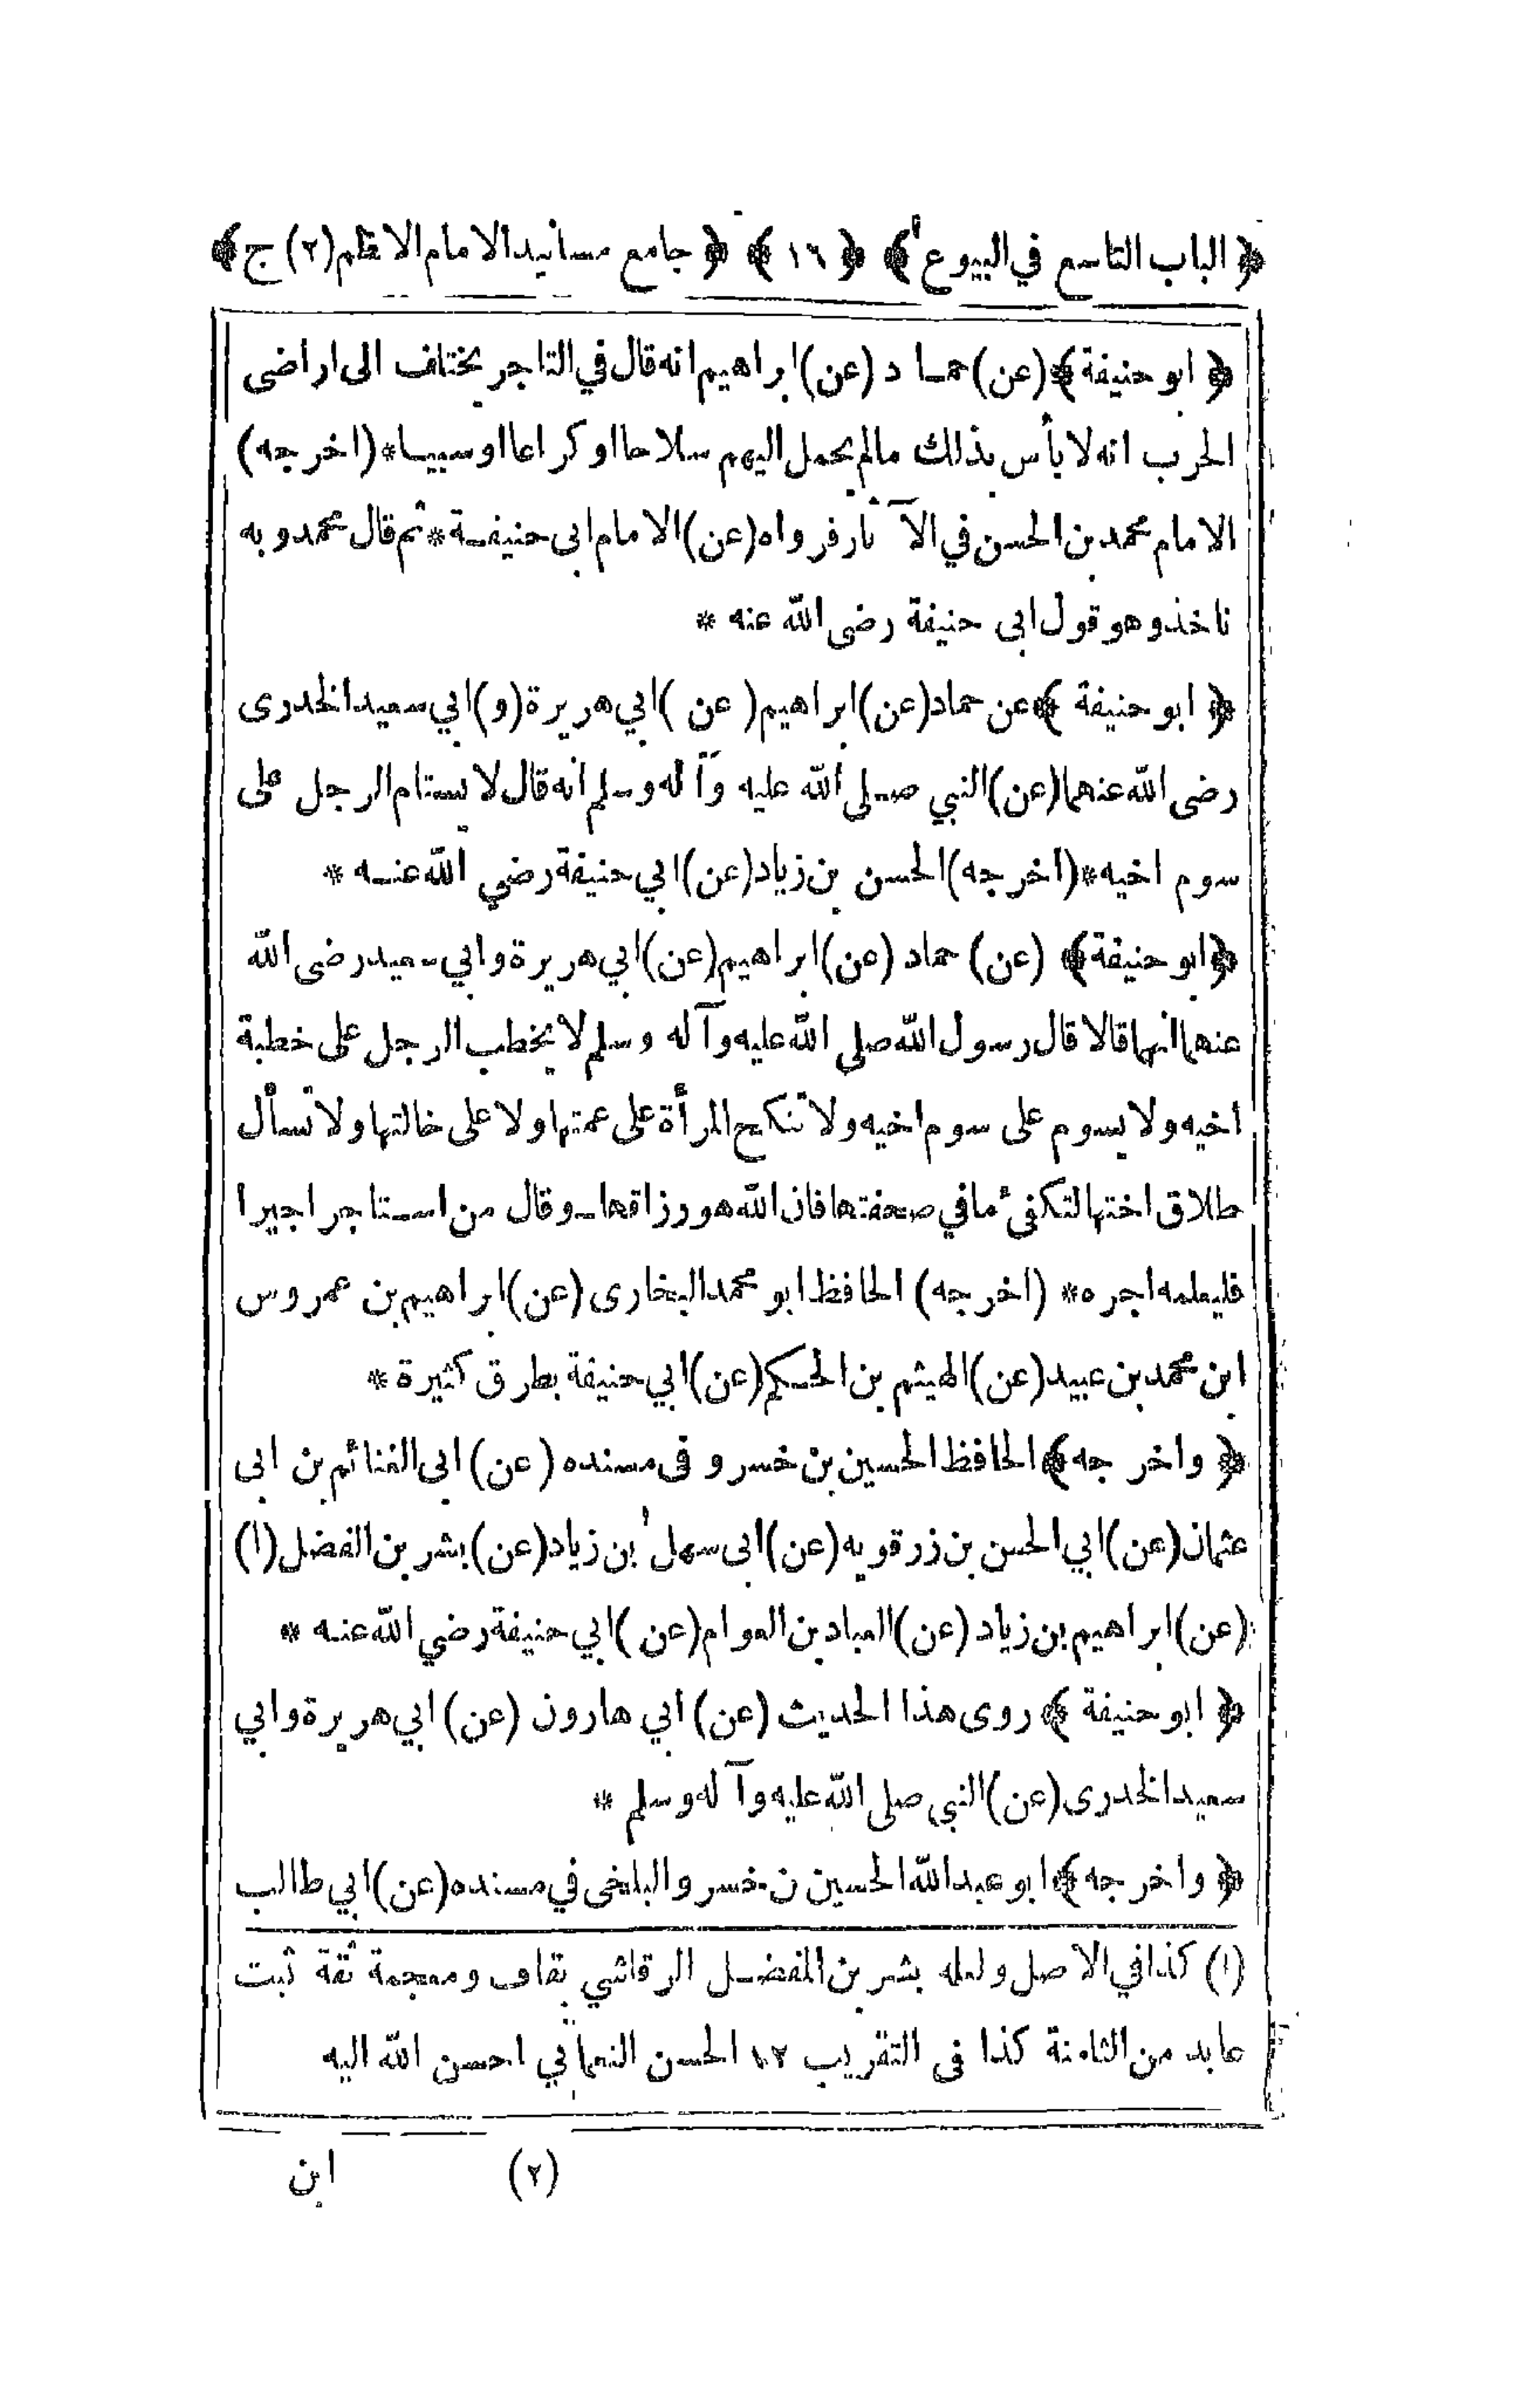 ﴿ الباب التاسع في البيوع ﴾ ﴿ ١٦ ﴾ ﴿ جامع مسانيد الامام الاعظم (٢) ج ﴾
﴿ ابو حنيفة ﴾ (عن) حماد (عن) ابراهيم انه قال في التاجر يختلف الى اراضى
الحرب انه لا بأس بذلك مالم يحمل اليهم سلاحا او كراعا او سبيا * (اخرجه)
الامام محمد بن الحسن في الآثار فرواه (عن) الامام ابى حنيفة * ثم قال محمد وبه
ناخذ وهو قول ابى حنيفة رضى الله عنه *
﴿ ابو حنيفة ﴾ عن حماد (عن) ابراهيم (عن) ابي هريرة (و) ابي سعيد الخدرى
رضى الله عنهما (عن) النبي صلى الله عليه وآله وسلم انه قال لا يستام الرجل على
سوم اخيه * (اخرجه) الحسن بن زياد (عن) ابي حنيفة رضي الله عنه *
﴿ ابو حنيفة ﴾ (عن) حماد (عن) ابراهيم (عن) ابي هريرة وابي سعيد رضى الله
عنهما انهما قالا قال رسول الله صلى الله عليه وآله وسلم لا يخطب الرجل على خطبة
اخيه ولا يسوم على سوم اخيه ولا تنكح المرأة على عمتها ولا على خالتها ولا تسأل
طلاق اختها لتكفئ ما في صحفتها فان الله هو رزاقها ـ وقال من استاجر اجيرا
فليعلمه اجره * (اخرجه) الحافظ ابو محمد البخارى (عن) ابراهيم بن عمروس
ابن محمد بن عبيد (عن) الهيثم بن الحكم (عن) ابي حنيفة بطرق كثيرة *
﴿ واخرجه ﴾ الحافظ الحسين بن خسرو فى مسنده (عن) ابى الغنائم بن ابى
عثمان (عن) ابي الحسن بن زرقويه (عن) ابى سهل بن زياد (عن) بشر بن الفضل (١)
(عن) ابراهيم بن زياد (عن) العباد بن العوام (عن) ابي حنيفة رضي الله عنه *
﴿ ابو حنيفة ﴾ روى هذا الحديث (عن) ابي هارون (عن) ابي هريرة وابي
سعيد الخدرى (عن) النبي صلى الله عليه وآله وسلم *
﴿ واخرجه ﴾ ابو عبد الله الحسين بن خسرو البلخى في مسنده (عن) ابي طالب
(١) كذا في الاصل ولعله بشر بن المفضل الرقاشي بقاف ومعجمة ثقة ثبت
عابد من الثامنة كذا فى التقريب ١٢ الحسن النعماني احسن الله اليه
(٢) ابن